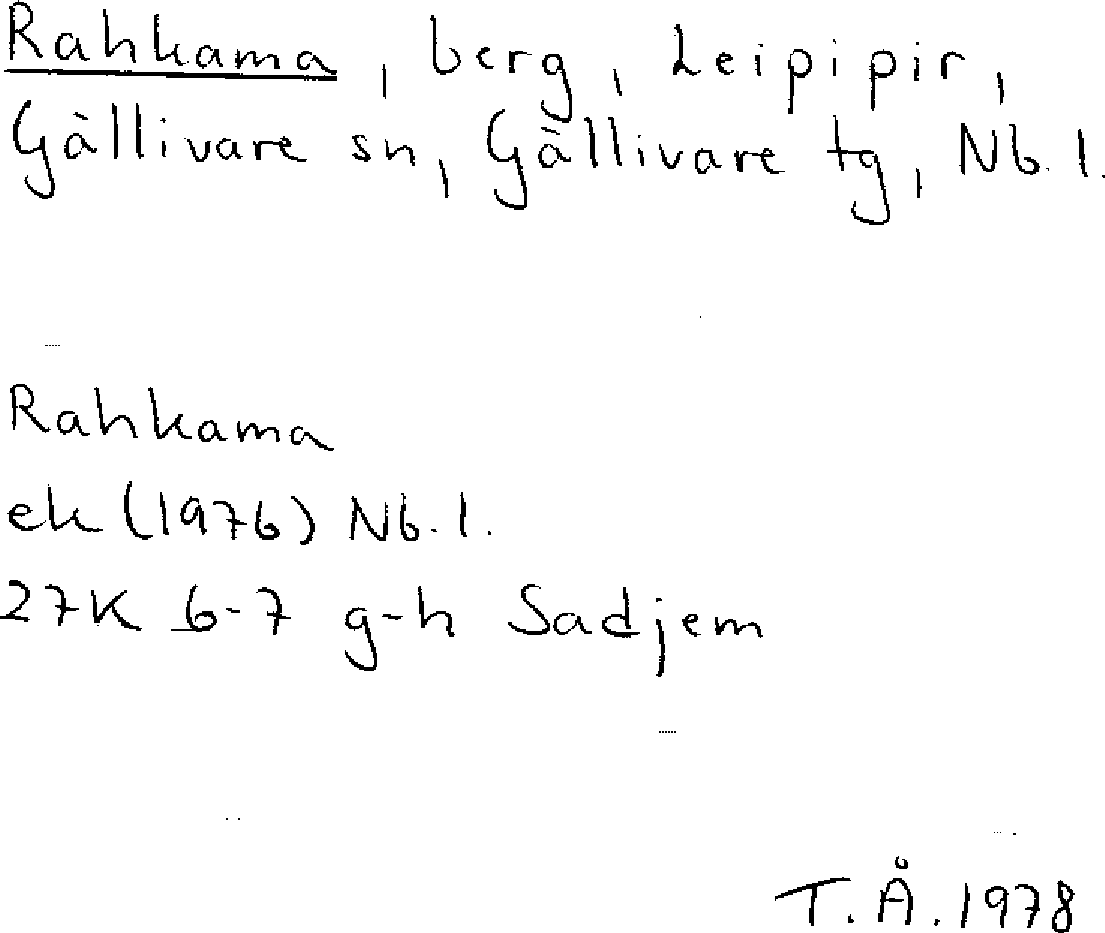 Rahkama, berg, Leipipir,
Gällivare sn, Gällivare tg, Nb. l.
Rahkama
ek (1976) Nb. l.
27K 6-7 g-h Sadjem
T. Å. 1978